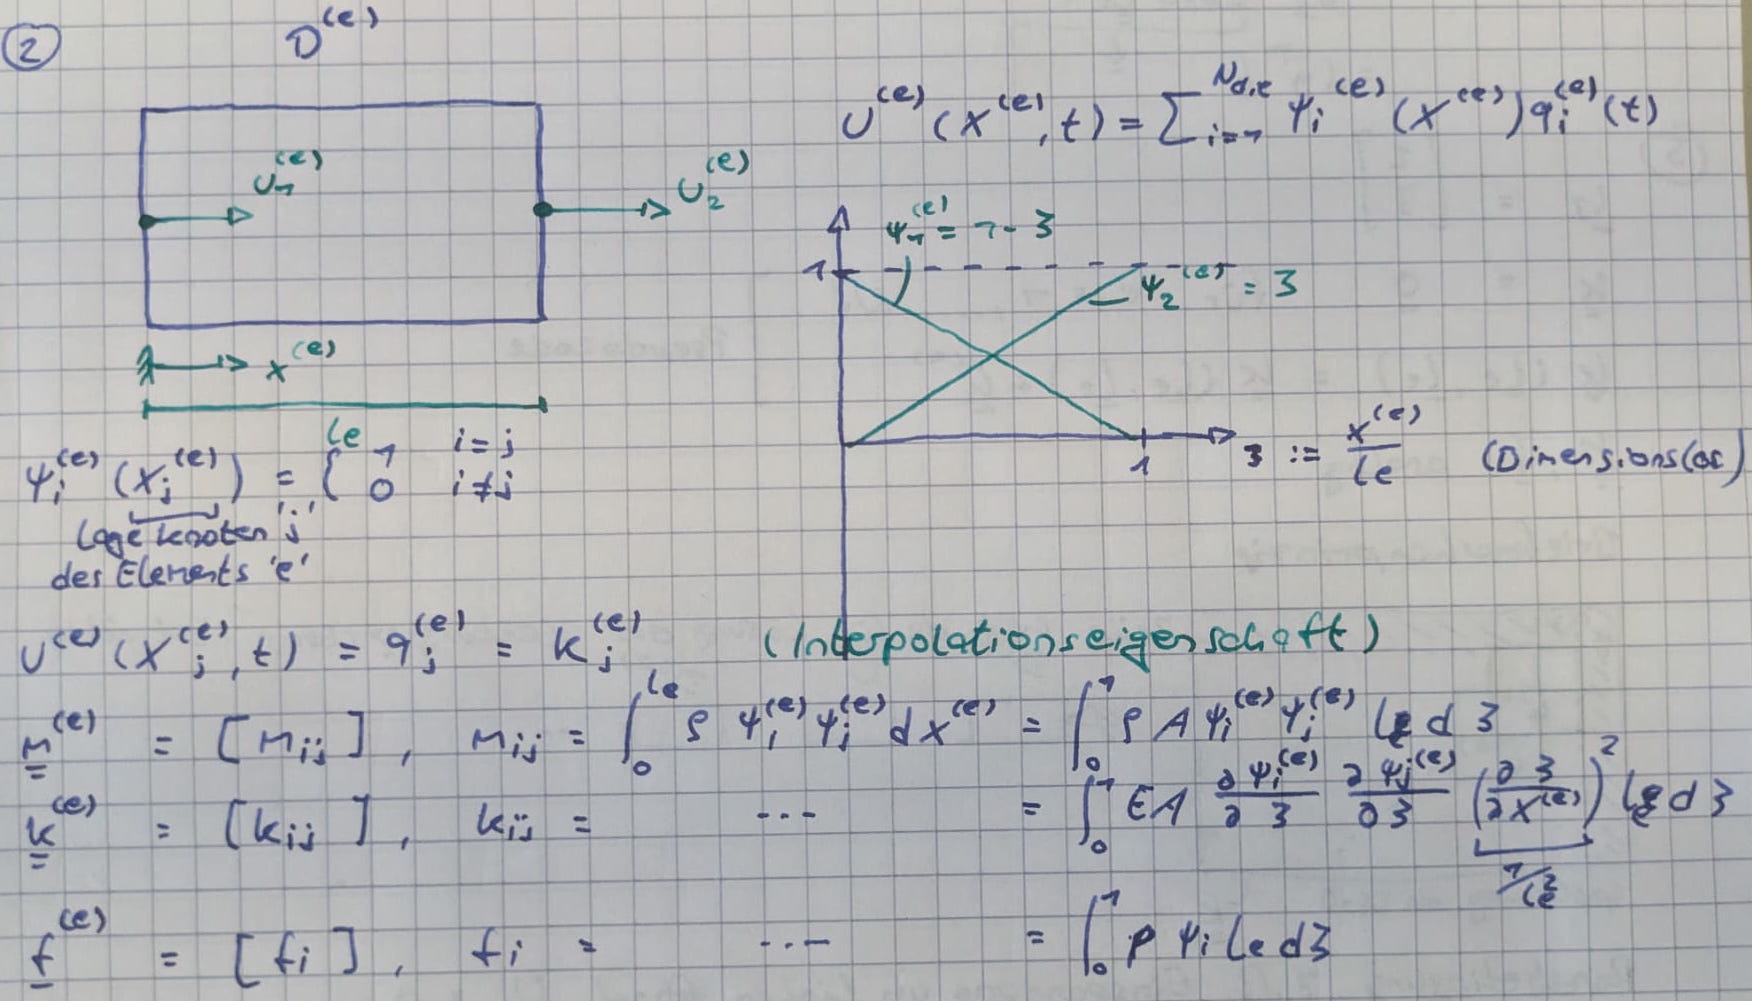 ② D^(e)
U^(e) (x^(e), t) = Σ_{i=1}^{Nd,e} ψ_i^(e) (x^(e)) q_i^(e) (t)
U_1^(e)
U_2^(e)
ψ_1^(e) = 1 - ξ
1
ψ_2^(e) = ξ
x^(e)
le
1 ξ := x^(e) / le (Dimensionslos)
ψ_i^(e) (x_j^(e)) = { 1 i = j
0 i ≠ j
Lage knoten 'j'
des Elements 'e'
U^(e) (x_j^(e), t) = q_j^(e) = k_j^(e) (Interpolationseigenschaft)
m^(e) = [m_ij], m_ij = ∫_0^le ρ ψ_i^(e) ψ_j^(e) dx^(e) = ∫_0^1 ρ A ψ_i^(e) ψ_j^(e) le dξ
k^(e) = [k_ij], k_ij = ... = ∫_0^1 EA ∂ψ_i^(e)/∂ξ ∂ψ_j^(e)/∂ξ (∂ξ/∂x^(e))^2 le dξ
1/le^2
f^(e) = [f_i], f_i = ... = ∫_0^1 p ψ_i le dξ